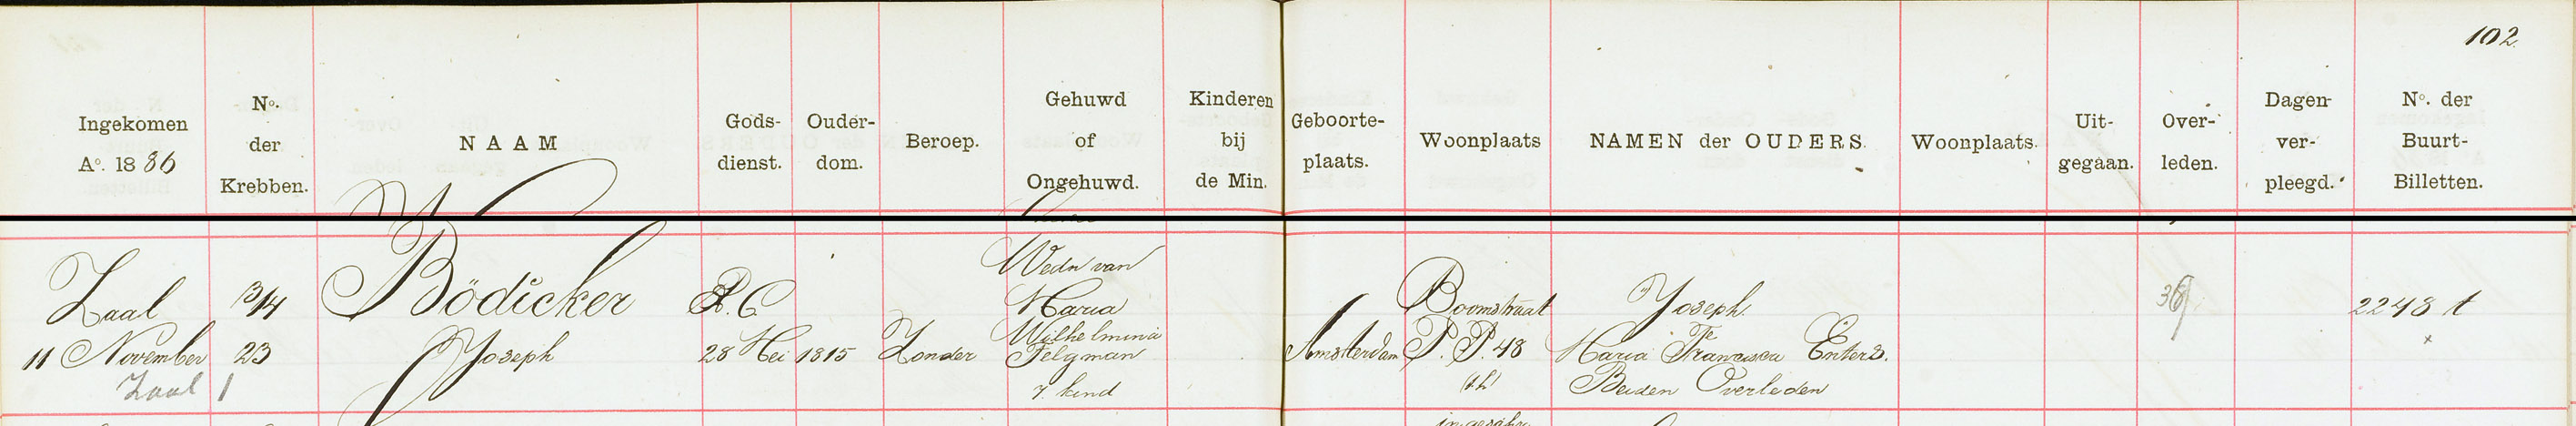 102
Ingekomen
Aº. 1886
Nº.
der
Krebben.
NAAM
Gods-
dienst.
Ouder-
dom.
Beroep.
Gehuwd
of
Ongehuwd.
Kinderen
bij
de Min.
Geboorte-
plaats.
Woonplaats
NAMEN der OUDERS.
Woonplaats.
Uit-
gegaan.
Over-
leden.
Dagen
ver-
pleegd.
Nº. der
Buurt-
Billetten.
Zaal
11 November
Zaal 1
3/4
23
Bödicker
Joseph
R.C
28 Mei 1815
Zonder
Wedn van
Maria
Wilhelmina
Felgman
7 kind
Amsterdam
Boomstraat
P.P. 48
Joseph
Maria Francisca Enters.
Beiden Overleden
36
2248 t